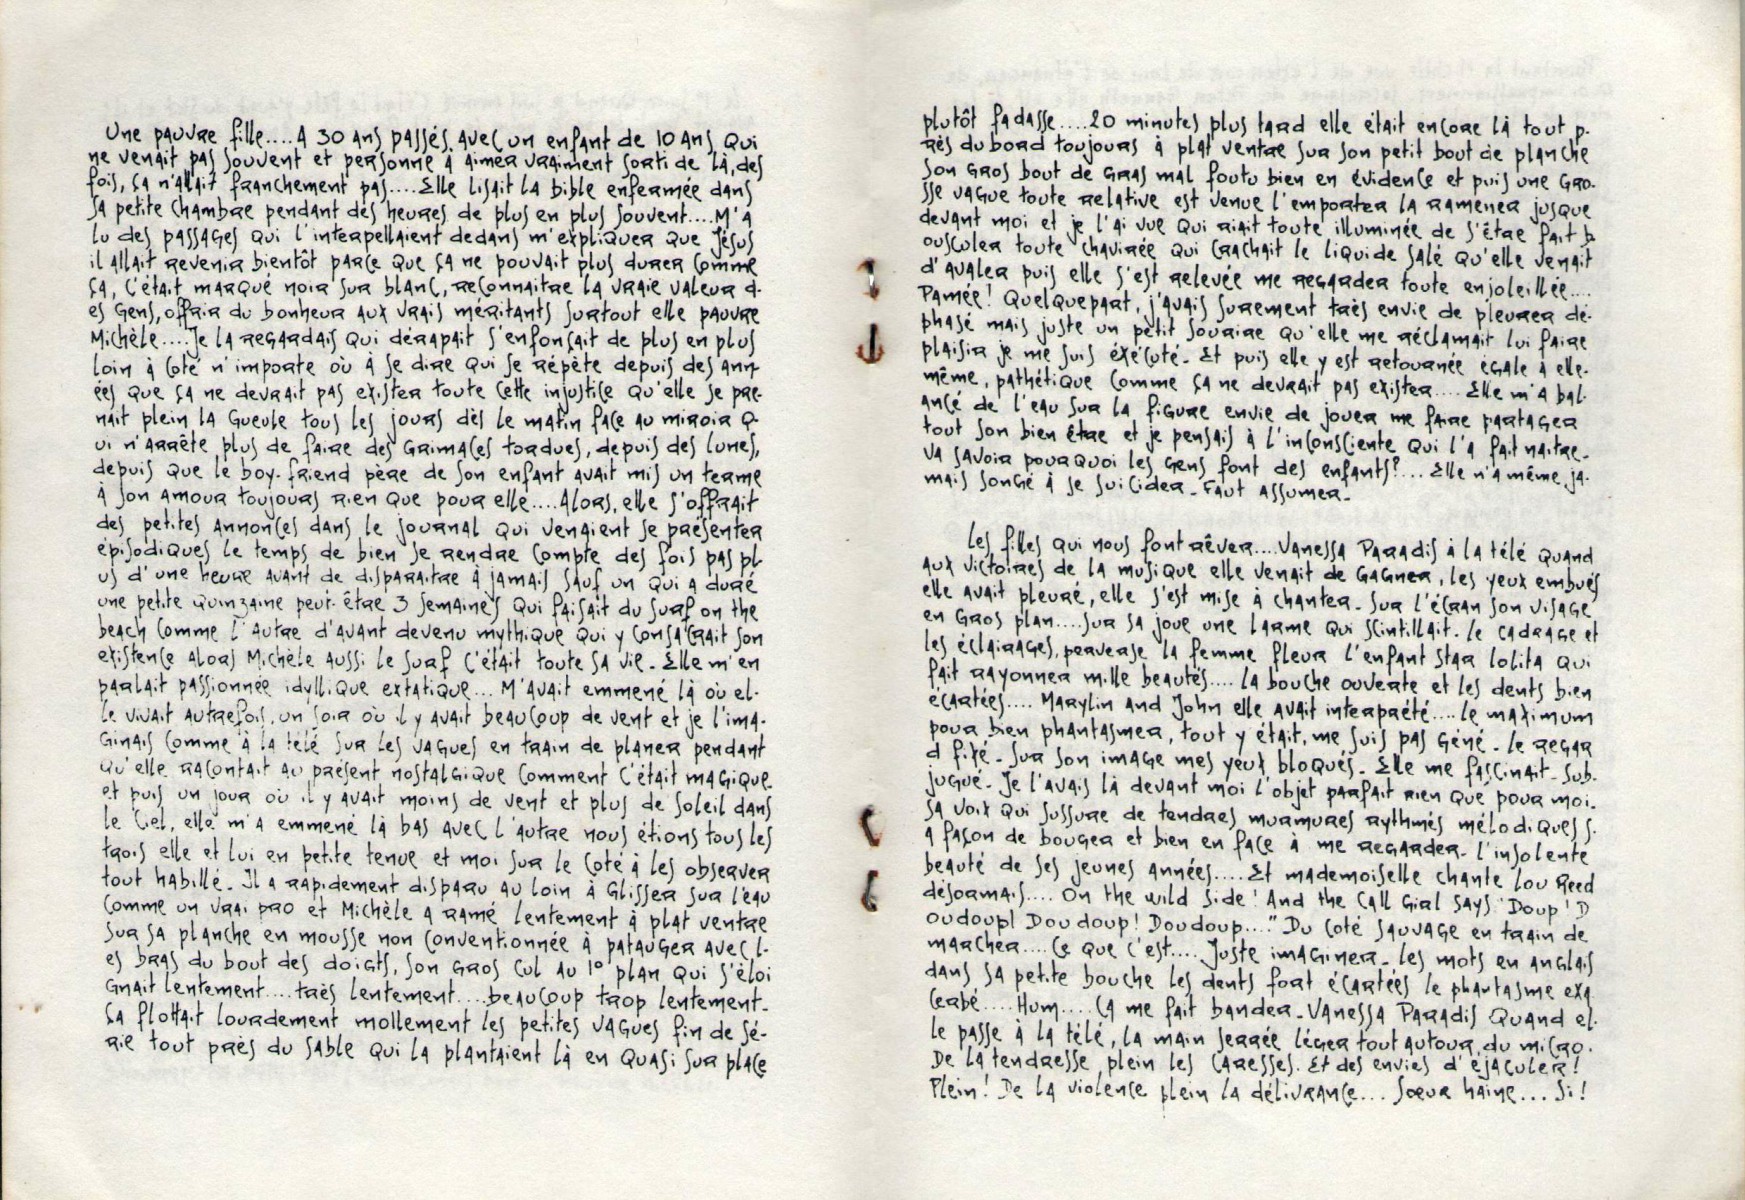 Une pauvre fille....A 30 ans passés, avec un enfant de 10 ans qui
ne venait pas souvent et personne à aimer vraiment sorti de là, des
fois, ça n'allait franchement pas....Elle lisait la bible enfermée dans
sa petite chambre pendant des heures de plus en plus souvent....M'a
lu des passages qui l'interpellaient dedans m'expliquer que Jésus
il allait revenir bientôt parce que ça ne pouvait plus durer comme
ça, c'était marqué noir sur blanc, reconnaitre la vraie valeur d-
es gens, offrir du bonheur aux vrais méritants surtout elle pauvre
Michèle....Je la regardais qui dérapait s'enfonçait de plus en plus
loin à coté n'importe où à se dire qui se répète depuis des ann-
ées que ça ne devrait pas exister toute cette injustice qu'elle se pre-
nait plein la gueule tous les jours dès le matin face au miroir q-
ui n'arrête plus de faire des grimaces tordues, depuis des lunes,
depuis que le boy-friend père de son enfant avait mis un terme
à son amour toujours rien que pour elle....Alors, elle s'offrait
des petites annonces dans le journal qui venaient se présenter
épisodiques le temps de bien se rendre compte des fois pas pl-
us d'une heure avant de disparaitre à jamais sauf un qui a duré
une petite quinzaine peut-être 3 semaines qui faisait du surf on the
beach comme l'autre d'avant devenu mythique qui y consacrait son
existence alors Michèle aussi le surf c'était toute sa vie. Elle m'en
parlait passionnée idyllique extatique... M'avait emmené là où el-
le vivait autrefois, un soir où il y avait beaucoup de vent et je l'ima-
ginais comme à la télé sur les vagues en train de planer pendant
qu'elle racontait au présent nostalgique comment c'était magique.
et puis un jour où il y avait moins de vent et plus de soleil dans
le ciel, elle m'a emmené là bas avec l'autre nous étions tous les
trois elle et lui en petite tenue et moi sur le coté à les observer
tout habillé. Il a rapidement disparu au loin à glisser sur l'eau
comme un vrai pro et Michèle a ramé lentement à plat ventre
sur sa planche en mousse non conventionnée à patauger avec l-
es bras du bout des doigts, son gros cul au 1° plan qui s'éloi
gnait lentement....très lentement....beaucoup trop lentement.
ça flottait lourdement mollement les petites vagues fin de sé-
rie tout près du sable qui la plantaient là en quasi sur place
plutôt fadasse....20 minutes plus tard elle était encore là tout p-
rès du bord toujours à plat ventre sur son petit bout de planche
son gros bout de gras mal foutu bien en évidence et puis une gro-
sse vague toute relative est venue l'emporter la ramener jusque
devant moi et je l'ai vue qui riait toute illuminée de s'être fait b
ousculer toute chavirée qui crachait le liquide salé qu'elle venait
d'avaler puis elle s'est relevée me regarder toute enjoleillée....
Pamée! Quelquepart, j'avais surement très envie de pleurer dé-
phasé mais juste un petit sourire qu'elle me réclamait lui faire
plaisir je me suis éxécuté. Et puis elle y est retournée égale à elle-
même, pathétique comme ça ne devrait pas exister.... Elle m'a bal-
ancé de l'eau sur la figure envie de jouer me faire partager
tout son bien être et je pensais à l'inconsciente qui l'a fait naitre.
Va savoir pourquoi les gens font des enfants?... Elle n'a même ja-
mais songé à se suicider. Faut assumer.
Les filles qui nous font rêver....Vanessa Paradis à la télé quand
aux victoires de la musique elle venait de gagner, les yeux embués
elle avait pleuré, elle s'est mise à chanter. Sur l'écran son visage
en gros plan....Sur sa joue une larme qui scintillait. Le cadrage et
les éclairages, perverse la femme fleur l'enfant star lolita qui
fait rayonner mille beautés.... la bouche ouverte et les dents bien
écartées.... Marylin and John elle avait interprété....Le maximum
pour bien phantasmer, tout y était, me suis pas géné. Le regar
d fixé. Sur son image mes yeux bloqués. Elle me fascinait. Sub-
jugué. Je l'avais là devant moi l'objet parfait rien que pour moi.
Sa voix qui sussure de tendres murmures rythmés mélodiques s-
a façon de bouger et bien en face à me regarder. l'insolente
beauté de ses jeunes années....Et mademoiselle chante Lou Reed
désormais.... On the wild side! And the call girl says "Doup! D
oudoup! Doudoup! Doudoup...." Du coté sauvage en train de
marcher....Ce que c'est.... Juste imaginer. Les mots en anglais
dans sa petite bouche les dents fort écartées le phantasme exa
cerbé....Hum....Ca me fait bander. Vanessa Paradis quand el-
le passe à la télé, la main serrée léger tout autour du micro.
De la tendresse plein les caresses. Et des envies d'éjaculer!
Plein! De la violence plein la délivrance... Sœur haine... Si!